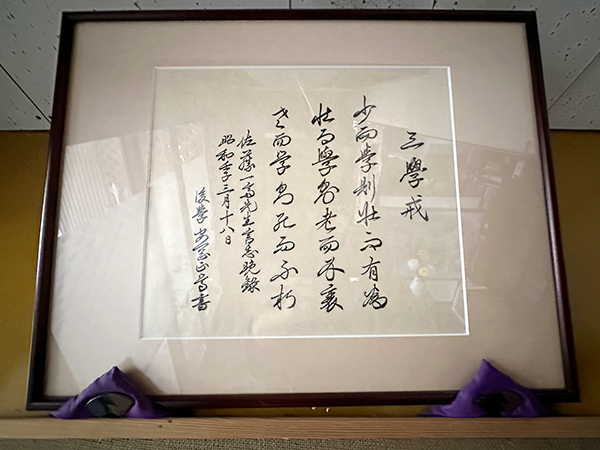 三學戒
少而學則壯而有為
壯而學則老而不衰
老而学則死而不朽
佐藤一斎先生言志晩録
昭和季三月十八日
後学 安岡正篤書